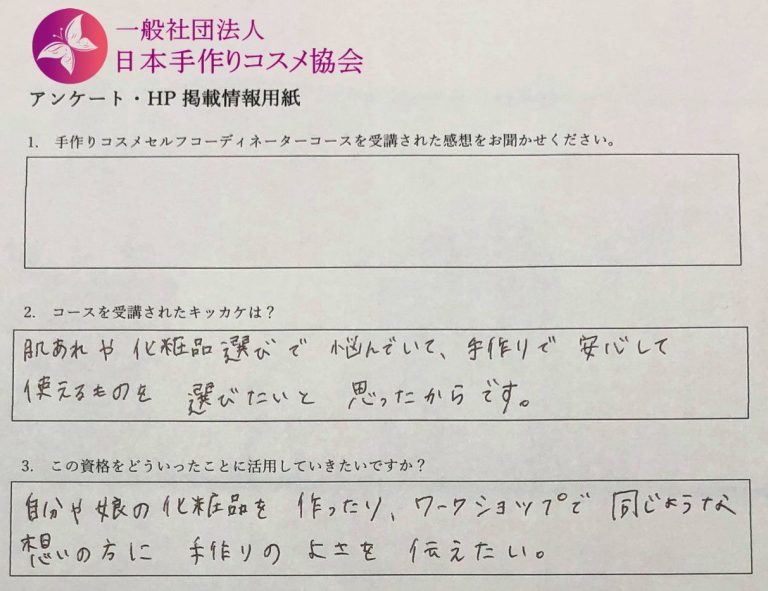 一般社団法人
日本手作りコスメ協会
アンケート・HP 掲載情報用紙
1. 手作りコスメセルフコーディネーターコースを受講された感想をお聞かせください。
2. コースを受講されたキッカケは？
肌あれや化粧品選びで悩んでいて、手作りで安心して
使えるものを選びたいと思ったからです。
3. この資格をどういったことに活用していきたいですか？
自分や娘の化粧品を作ったり、ワークショップで同じような
想いの方に手作りのよさを伝えたい。